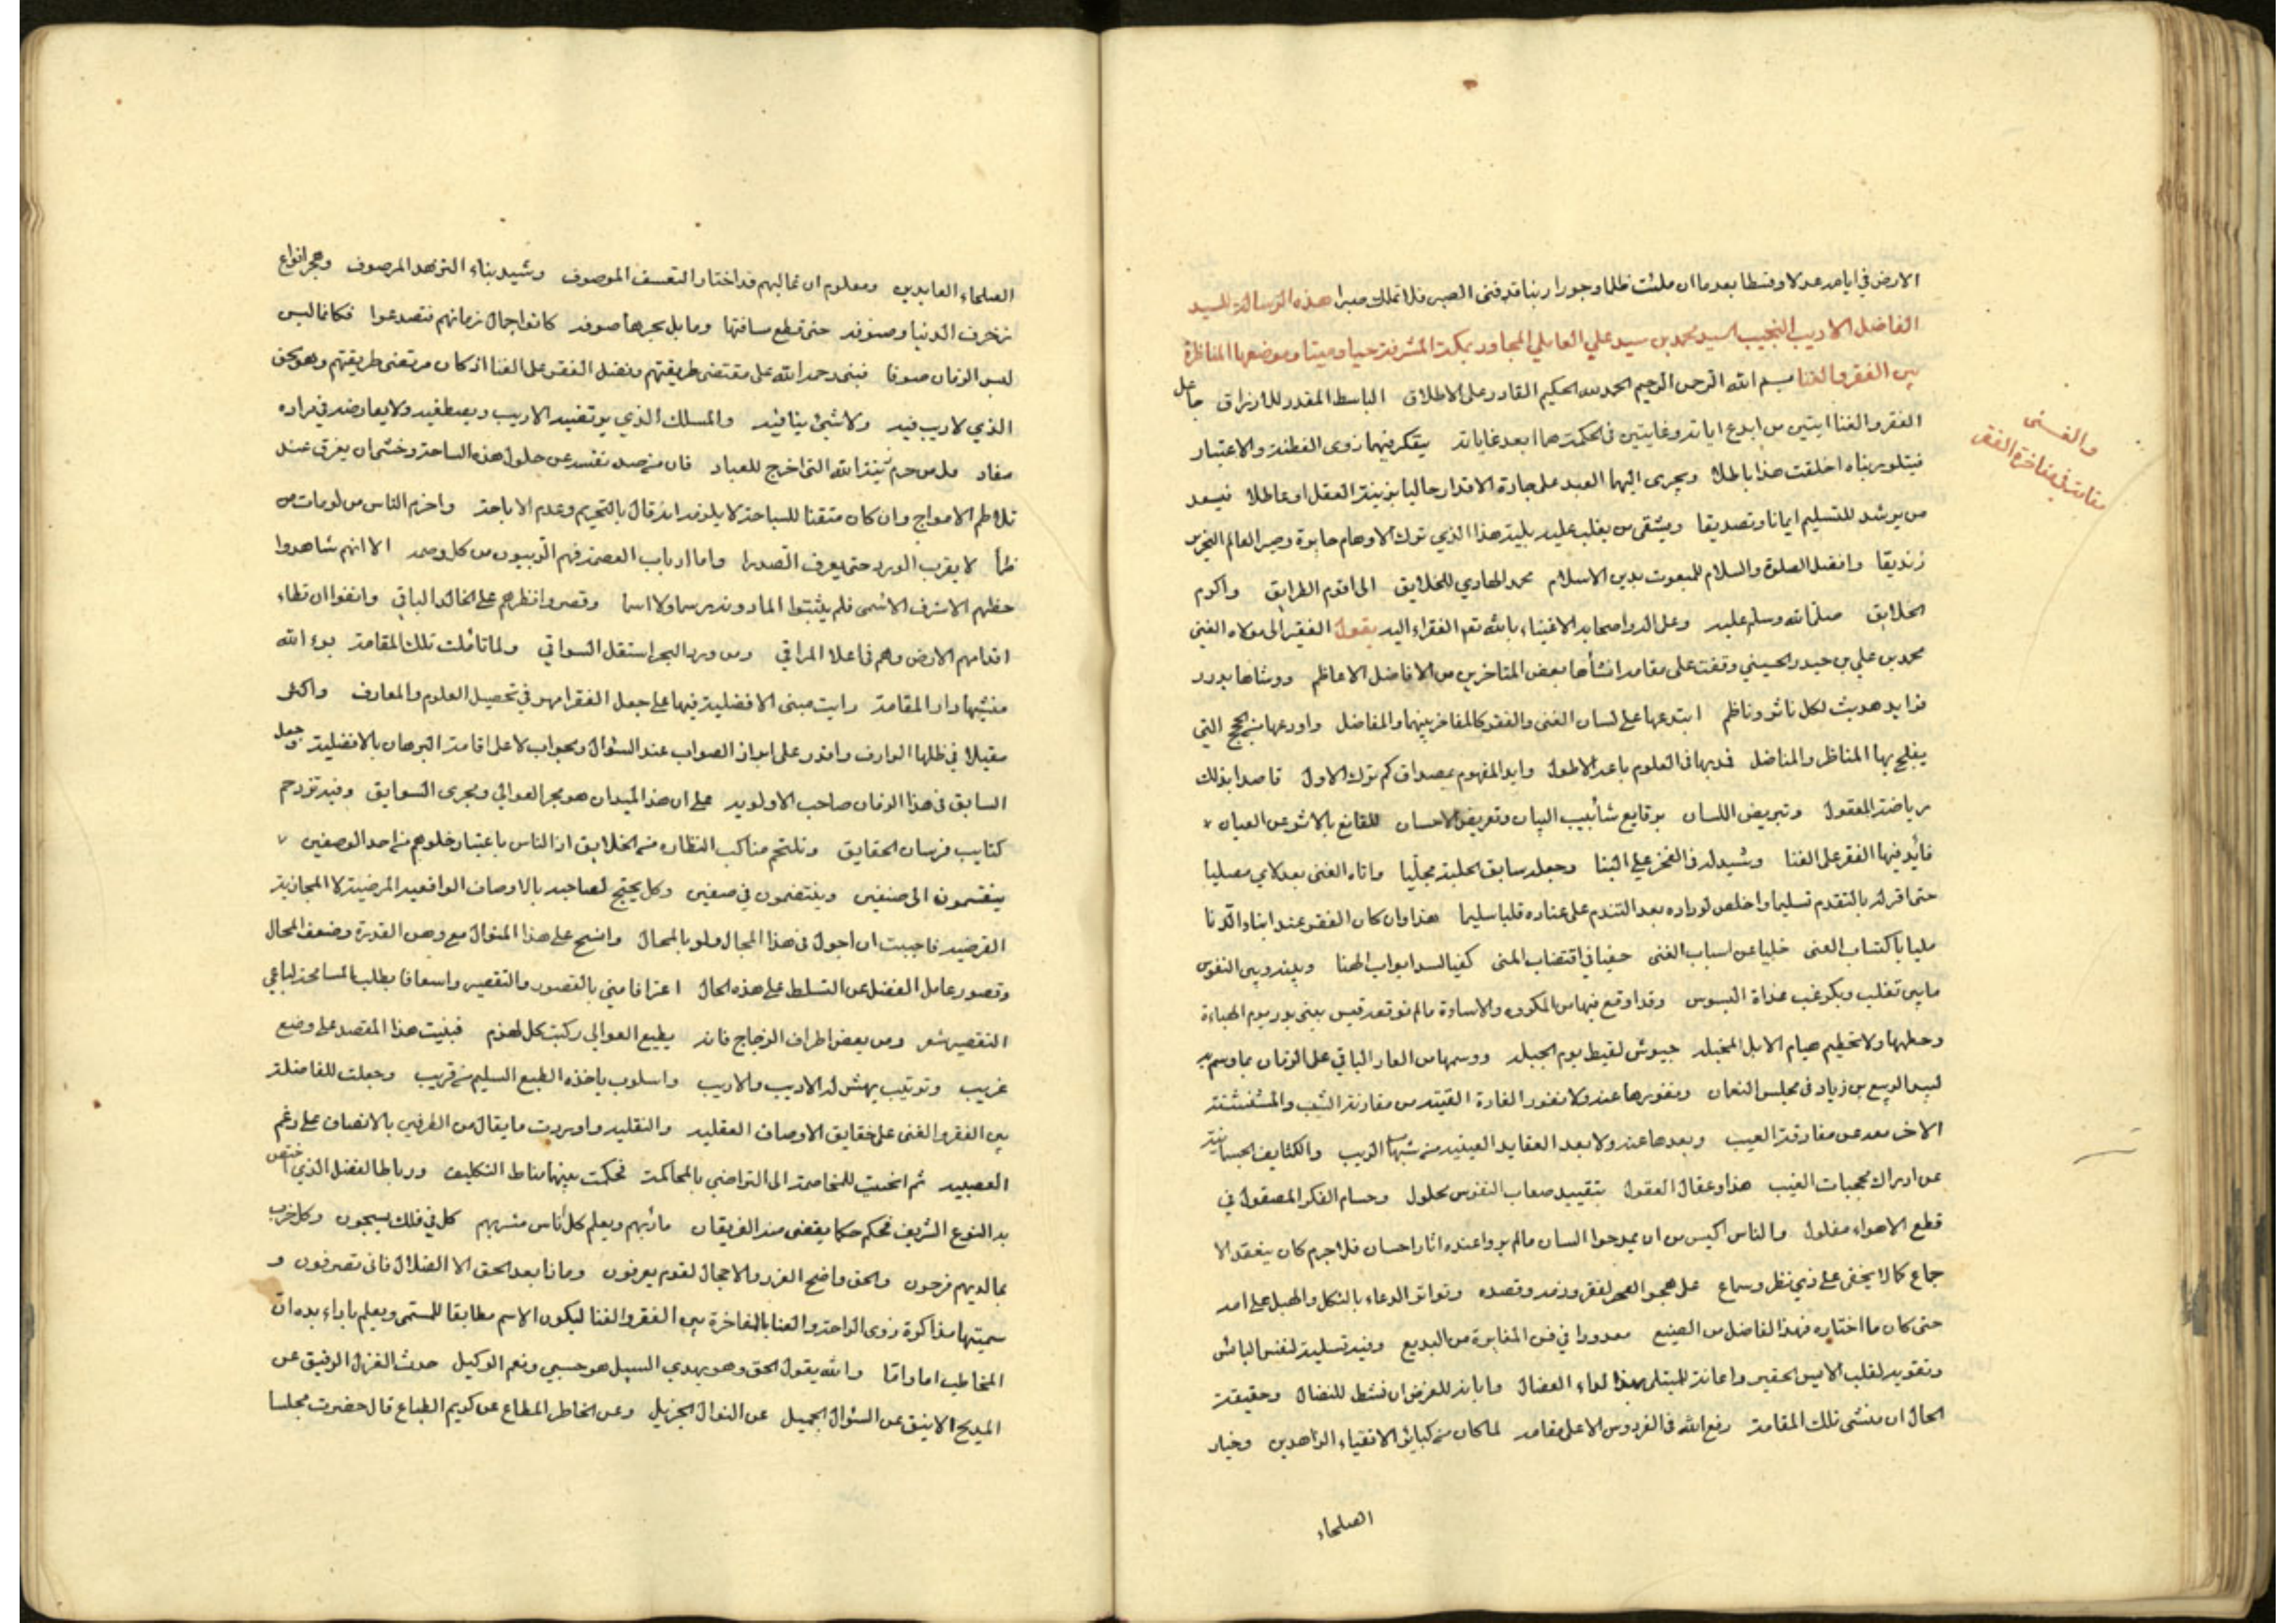 الارض في ايامه عدلا وقسطا بعد ما ان ملئت ظلما وجورا ربنا قد فنى الصبر فلا نملك صبرا هذه الرسالة للسيد
الفاضل الاديب النجيب السيد محمد بن سيد علي العاملي المجاور بمكة المشرفة حيا وميتا وموضوعها المناظرة
بين الفقر والغنا بسم الله الرحمن الرحيم الحمد لله الحكيم القادر على الاطلاق الباسط المقدر للارزاق جاعل
الفقر والغنا ايتين من ابدع اياته وغايتين في الحكمة هما ابعد غاياته يتفكر فيهما ذوى الفطنة والاعتبار
فيتلو ربناه اخلقت هذا باطلا ويجرى اليهما العبد على جادة الاقدار حاليا بزينة العقل او عاطلا فيسعد
من يرشد للتسليم ايمانا وتصديقا ويشقى من يغلب عليه بليته هذا الذي ترك الاوهام حايرة وصير العالم النحرير
زنديقا وافضل الصلوة والسلام للمبعوث بدين الاسلام محمد الهادي للخلايق الى اقوم الطرايق واكرم
الخلايق صلى الله وسلم عليه وعلى اله واصحابه الاغنياء بالله نعم الفقراء اليه يقول الفقير الى مولاه الغنى
محمد بن علي بن حيدر الحسيني وقفت على مقامه انشأها بعض المتاخرين من الافاضل الاعاظم ووشاها بدرر
فرايد هديت لكل ناثر وناظم ابتدعها على لسان الغنى والفقر كالمفاخر بينهما والمفاضل واودعها من الحجج التي
يفلج بها المناظر والمناضل فدبها في العلوم باعه الاطول وايد المفهوم بمصداق كم ترك الاول قاصدا بذلك
رياضة العقول وترييض اللسان بوقايع شأبيب البيان وتعريض الاحسان للقانع بالاثر عن العيان
فأيد فيها الفقر على الغنا وشيد له في الفخر على البنا وجعله سابق الحلبة مجلّيا واتاه الغنى بعد لاي مصليا
حتى اقر له بالتقدم تسليما واخلص لوداده بعد التندم على عناده قلبا سليما هذا وان كان الفقر عند ابناء الدنا
مليا باكتساب العنى خليا عن اسباب الغنى حفيا في اقتضاب المنى كفيا لسد ابواب الهنا وبينه وبين النفوس
ما بين تغلب وبكر غب غداة البسوس وقد اوقع فيها من المكروه والاساوة مالم توقعه قيس ببنى بدر يوم الهباءة
وحطمها ولا تحطيم هيام الابل المخيله جيوش لقيط يوم الجبله ووسمها من العار الباقي على الزمان بما وسم به
لبيد الربيع بن زياد في مجلس النعمان ونفورها عنه ولا نفور الغادة الفتيه من مقارنة الشيب والمستشنة
الاخر بعد عن مفارقة العيب وبعدها عنه ولا بعد العقايد اليقينيه من شبهات الريب والكثايف الجسمانية
عن ادراك محجبات الغيب هذا وعقال العقول بتقييد صعاب النفوس محلول وحسام الفكر المصقول في
قطع الاهواء مفلول والناس اكيس من ان يمدحوا انسان مالم يروا عنده اثار احسان فلا جرم كان ينعقد الا
جماع كما لا يخفى على ذي نظر وسماع على هجو الفقر وذمه وقصده وتواتر الدعاء بالثكل والهبل على امه
حتى كان ما اختاره فهذا الفاضل من الصنيع معدودا في فن المغايرة من البديع وفيه تسلية لنفس البائس
وتقويه لقلب الايس الحقير واعانة للمبتلى بهذا الداء العضال وابانة للغرض ان نشط للنضال وحقيقة
الحال ان منشى تلك المقامة رفع الله في الفردوس الاعلى مقامه لما كان من كبائر الاتقياء الزاهدين وخيار
الصلحاء
والغنى
مقامة في مفاخرة الفقر
الصلحاء العابدين ومعلوم ان غالبهم قد اختار التقشف الموصوف وشيد بناء التزهد المرصوف وهجر انواع
زخرف الدنيا وصنوفه حتى قطع مسافتها وما بل بحرها صوفه كانوا جمال زمانهم فتصدعوا فكانما لبس
لبس الزمان صوفا فبنى رحمه الله على مقتضى طريقتهم وفضل الفقر على الغنا اذ كان مرتضى طريقتهم وهو الحق
الذي لا ريب فيه ولا شيئ ينافيه والمسلك الذي يرتضيه الاريب ويصطفيه ولا يعارضه في مراده
مفاد قل من حرم زينة الله التي اخرج للعباد فان من صد نفسه عن حلول هذه الساحة وخشى ان يغرق عند
تلاطم الامواج وان كان متقنا للسباحة لا يلزمه انه قال بالتحريم وعدم الاباحة واحزم الناس من لو مات من
ظمأ لا يقرب الورد حتى يعرف الصدرا واما ارباب العصمة فهم البريون من كل وصمه الا انهم شاهدوا
حظهم الاشرف الاسمى فلم يثبتوا لما دونه رسما ولا اسما وقصروا نظرهم على الخالد الباقي وانفوا ان تطاء
اقدامهم الارض وهم في اعلا المراقي ومن ورد البحر استقل السواقي ولما تأملت تلك المقامة بوء الله
منشيها دار المقامة رايت مبنى الافضلية فيها على جعل الفقر امهر في تحصيل العلوم والمعارف واكثر
مقيلا في ظلها الوارف واقدر على ابراز الصواب عند السؤال وبجواب لا على اقامة البرهان بالافضلية وجعل
السابق في هذا الزمان صاحب الاولويه على ان هذا الميدان هو مجر العوالي ومجرى السوابق وفيه تزدحم
كتايب فرسان الحقايق وتلتحم مناكب النظاره من الخلايق اذ الناس باعتبار خلوهم من احد الوصفين
ينقسمون الى صنفين وينتضمون في صفين وكل يحتج لصاحبه بالاوصاف الواقعيه المرضية لا المجازية
الفرضيه فاحببت ان اجول في هذا المجال ولو بالمحال وانسج على هذا المنوال مع وهن القدرة وضعف المحال
وقصور عامل الفضل عن التسلط على هذه الحال اعترافا منى بالقصور والتقصير واسعافا بطلب المسامحة لباعي
القصير شعر ومن بعض اطراف الزجاج فانه يطيع العوالي ركبت كل لهذم فبنيت هذا المقصد على وضع
غريب وترتيب يهش له الاديب والاريب واسلوب ياخذه الطبع السليم من قريب وجعلت المفاضلة
بين الفقر والغنى على حقايق الاوصاف العقليه والنقليه واوردت ما يقال من الطرفين بالانصاف على رغم
العصبيه ثم انخت المخاصمة الى التراضي بالمحاكمة فحكمت بينهما مناط التكليف ورباط الفضل الذي اختص
به النوع الشريف فحكم حكما يقضى منه الفريقان مأربهم ويعلم كل أناس مشربهم كل في فلك يسبحون وكل حزب
بما لديهم فرحون والحق واضح الغرر والاحجال لقوم يعرفون وماذا بعد الحق الا الضلال فانى تصرفون و
سميتها مذاكرة ذوى الراحة والعنا بالمفاخرة بين الفقر والغنا ليكون الاسم مطابقا للمسمى ويعلم باداء بده ان
المخاطب اما واما والله يقول الحق وهو يهدي السبيل هو حسبي ونعم الوكيل حدث الغزل الرقيق عن
المديح الانيق عن السئوال الجميل عن النوال الجزيل وعن الخاطر المطاع عن كريم الطباع قال حضرت مجلسا